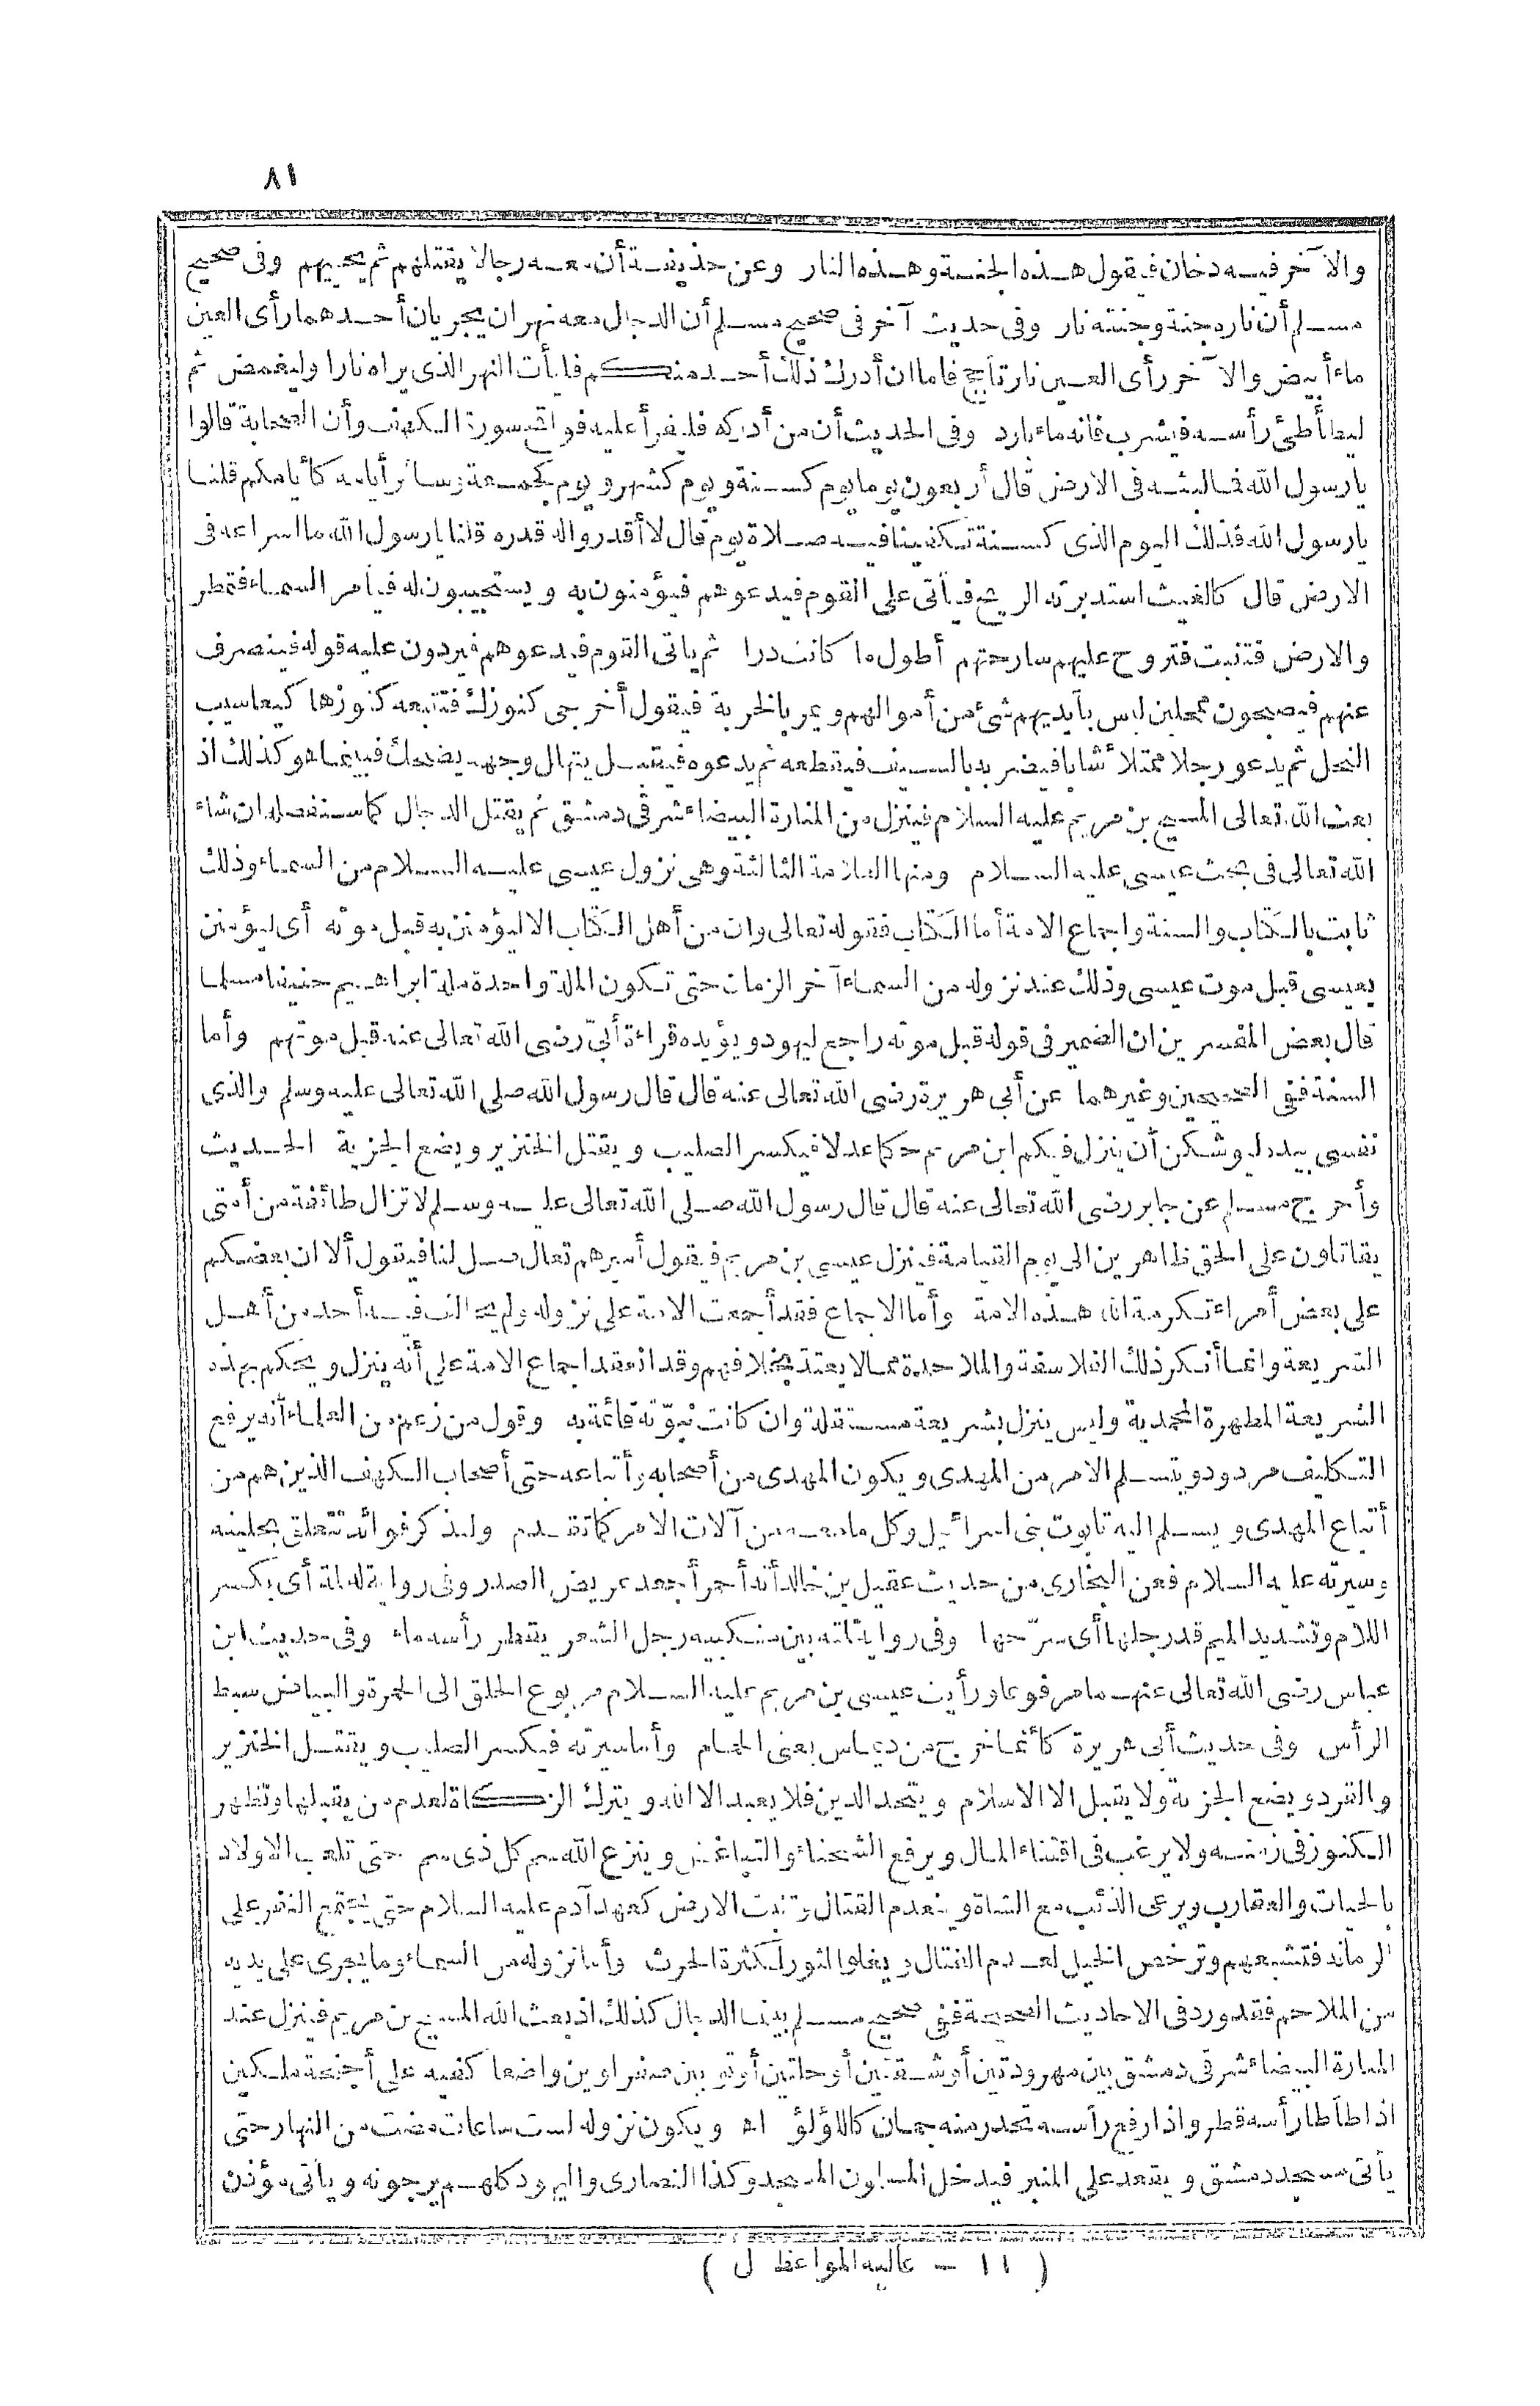 ٨١
والآخر فيه دخان فيقول هذه الجنة وهذه النار وعن حذيفة أن معه رجالا يقتلهم ثم يحييهم وفى صحيح
مسلم أن ناره جنة وجنته نار وفى حديث آخر فى صحيح مسلم أن الدجال معه نهران يجريان أحدهما رأى العين
ماء أبيض والآخر رأى العين نار تأجج فاما ان أدرك ذلك أحد منكم فليأت النهر الذى يراه نارا وليغمض ثم
ليطأطئ رأسه فيشرب فانه ماء بارد وفى الحديث أن من أدركه فليقرأ عليه فواتح سورة الكهف وأن الصحابة قالوا
يا رسول الله فما لبثه فى الارض قال أربعون يوما يوم كسنة ويوم كشهر ويوم كجمعة وسائر أيامه كأيامكم قلنا
يا رسول الله فذلك اليوم الذى كسنة تكفينا فيه صلاة يوم قال لا أقدروا له قدره قلنا يا رسول الله ما اسراعه فى
الارض قال كالغيث استدبرته الريح فيأتى على القوم فيدعوهم فيؤمنون به ويستجيبون له فيأمر السماء فتمطر
والارض فتنبت فتروح عليهم سارحتهم أطول ما كانت درا ثم يأتى القوم فيدعوهم فيردون عليه قوله فينصرف
عنهم فيصبحون ممحلين ليس بأيديهم شئ من أموالهم ويمر بالخربة فيقول أخرجى كنوزك فتتبعه كنوزها كيعاسيب
النحل ثم يدعو رجلا ممتلأ شابا فيضربه بالسيف فيقطعه ثم يدعوه فيقبل يتهلل وجهه يضحك فبينما هو كذلك اذ
بعث الله تعالى المسيح بن مريم عليه السلام فينزل من المنارة البيضاء شرقى دمشق ثم يقتل الدجال كما سنفصله ان شاء
الله تعالى فى بحث عيسى عليه السلام ومنها العلامة الثالثة وهى نزول عيسى عليه السلام من السماء وذلك
ثابت بالكتاب والسنة واجماع الامة أما الكتاب فقوله تعالى وان من أهل الكتاب الا ليؤمنن به قبل موته أى ليؤمنن
بعيسى قبل موت عيسى وذلك عند نزوله من السماء آخر الزمان حتى تكون الملة واحدة ملة ابراهيم حنيفا مسلما
قال بعض المفسرين ان الضمير فى قوله قبل موته راجع ليهود ويؤيده قراءة أبىّ رضى الله تعالى عنه قبل موتهم وأما
السنة ففى الصحيحين وغيرهما عن أبى هريرة رضى الله تعالى عنه قال قال رسول الله صلى الله تعالى عليه وسلم والذى
نفسى بيده ليوشكن أن ينزل فيكم ابن مريم حكما عدلا فيكسر الصليب ويقتل الخنزير ويضع الجزية الحديث
وأخرج مسلم عن جابر رضى الله تعالى عنه قال قال رسول الله صلى الله تعالى عليه وسلم لا تزال طائفة من أمتى
يقاتلون على الحق ظاهرين الى يوم القيامة فينزل عيسى بن مريم فيقول أميرهم تعال صل لنا فيقول ألا ان بعضكم
على بعض أمراء تكرمة الله هذه الامة وأما الاجماع فقد أجمعت الامة على نزوله ولم يخالف فيه أحد من أهل
الشريعة وانما أنكر ذلك الفلاسفة والملاحدة مما لا يعتد بخلافهم وقد انعقد اجماع الامة على أنه ينزل ويحكم بهذه
الشريعة المطهرة المحمدية وليس ينزل بشريعة مستقلة وان كانت نبوّته قائمة به وقول من زعم من العلماء أنه يرفع
التكليف مردود ويتسلم الامر من المهدى ويكون المهدى من أصحابه وأتباعه حتى أصحاب الكهف الذين هم من
أتباع المهدى ويسلم اليه تابوت بنى اسرائيل وكل ما معه من آلات الامر كما تقدم ولنذكر فوائد تتعلق بحليته
وسيرته عليه السلام فعن البخارى من حديث عقيل بن خالد أنه أحمر أجعد عريض الصدر وفى رواية له لمة أى بكسر
اللام وتشديد الميم قد رجلها أى سرّحها وفى رواية لمته بين منكبيه رجل الشعر يقطر رأسه ماء وفى حديث ابن
عباس رضى الله تعالى عنهما مرفوعا ورأيت عيسى بن مريم عليه السلام مربوع الخلق الى الحمرة والبياض سبط
الرأس وفى حديث أبى هريرة كأنما خرج من ديماس يعنى الحمام وأما سيرته فيكسر الصليب ويقتل الخنزير
والقرد ويضع الجزية ولا يقبل الا الاسلام ويتحد الدين فلا يعبد الا الله ويترك الزكاة لعدم من يقبلها وتظهر
الكنوز فى زمنه ولا يرغب فى اقتناء المال ويرفع الشحناء والتباغض وينزع الله سم كل ذى سم حتى تلعب الاولاد
بالحيات والعقارب ويرعى الذئب مع الشاة وينعدم القتال وتنبت الارض كعهد آدم عليه السلام حتى يجتمع النفر على
الرمانة فتشبعهم وترخص الخيل لعدم القتال ويغلو الثور لكثرة الحرث وأما نزوله من السماء وما يجرى على يديه
من الملاحم فقد ورد فى الاحاديث الصحيحة ففى صحيح مسلم بينا الدجال كذلك اذ بعث الله المسيح بن مريم فينزل عند
المنارة البيضاء شرقى دمشق بين مهرودتين أو شقتين أو حلتين أو ثوبين مصفراوين واضعا كفيه على أجنحة ملكين
اذا طأطأ رأسه قطر واذا رفع رأسه تحدر منه جمان كاللؤلؤ اه ويكون نزوله لست ساعات مضت من النهار حتى
يأتى مسجد دمشق ويقعد على المنبر فيدخل المسلمون المسجد وكذا النصارى واليهود كلهم يرجونه ويأتى مؤذن
( ١١ - غالية المواعظ ل )